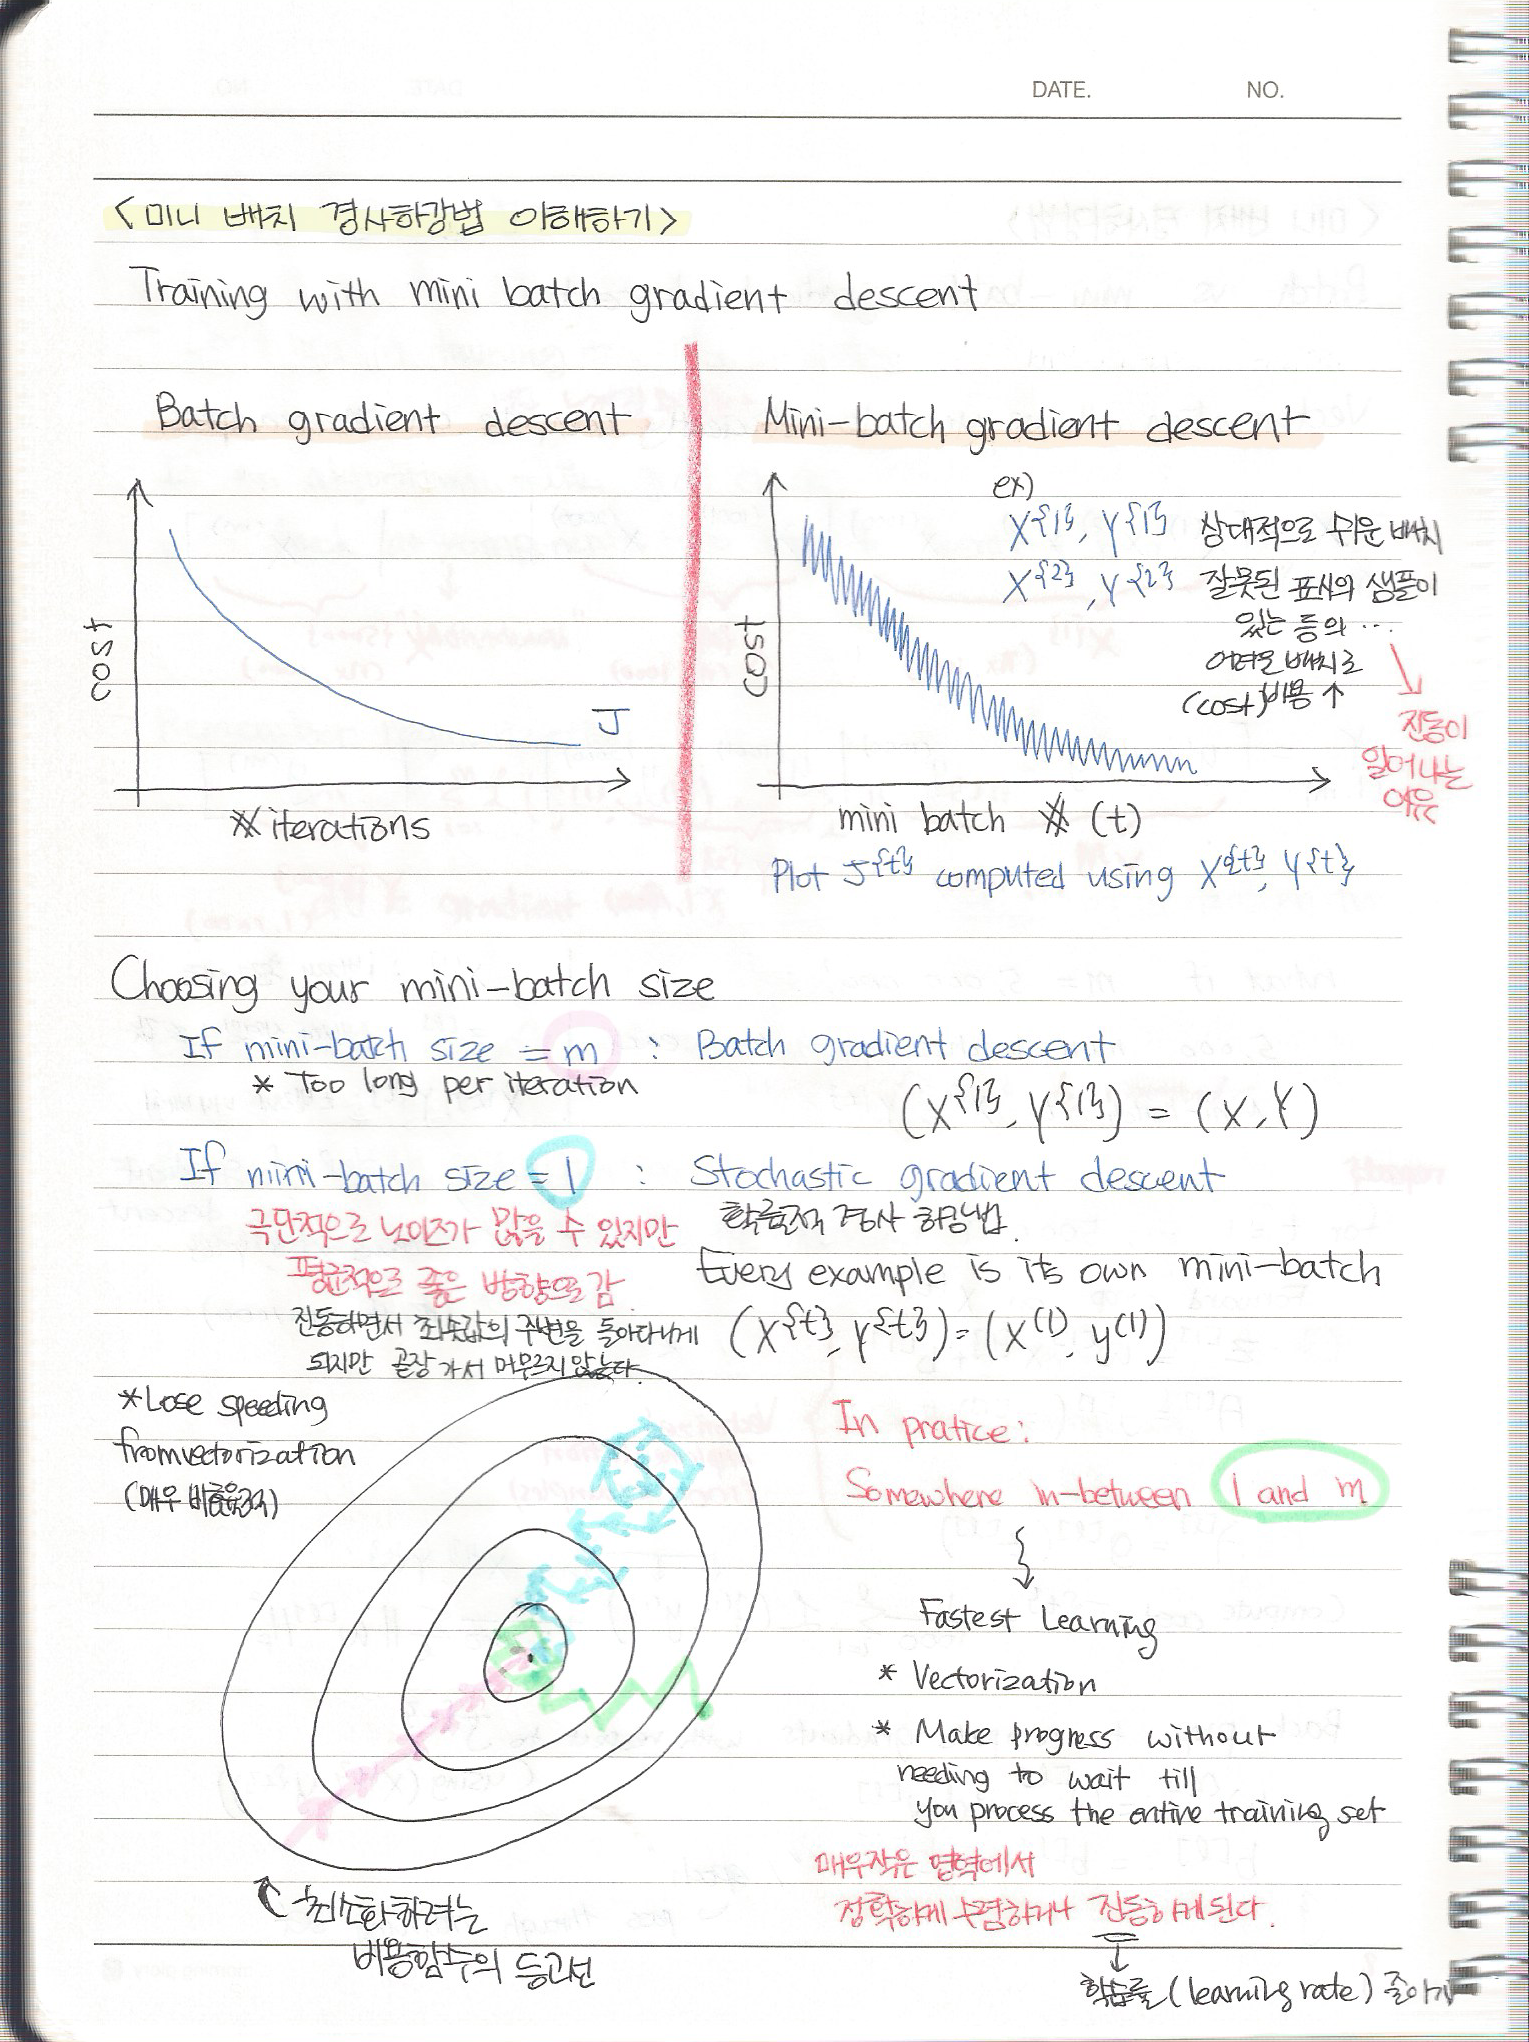 DATE. NO.
<미니 배치 경사하강법 이해하기>
Training with mini batch gradient descent
Batch gradient descent
cost
J
# iterations
Mini-batch gradient descent
ex)
X{1}, Y{1} 상대적으로 쉬운 배치
X{2}, Y{2} 잘못된 표시의 샘플이
있는 등의 ...
어려운 배치로
(cost) 비용 ↑
진동이
일어나는
이유
cost
mini batch # (t)
Plot J{t} computed using X{t}, Y{t}
Choosing your mini-batch size
If mini-batch size = m : Batch gradient descent
* Too long per iteration
(X{1}, Y{1}) = (X, Y)
If mini-batch size = 1 : Stochastic gradient descent
확률적 경사 하강법.
극단적으로 노이즈가 많을 수 있지만
평균적으로 좋은 방향으로 감
Every example is its own mini-batch
진동하면서 최솟값의 주변을 돌아다니게
되지만 곧장 가서 머무르지 않는다.
(X{t}, Y{t}) = (X(1), y(1))
* Lose speeding
from vectorization
(매우 비효율적)
In pratice:
Somewhere in-between 1 and m
Fastest Learning
* Vectorization
* Make progress without
needing to wait till
you process the entire training set
매우작은 영역에서
정확하게 수렴하거나 진동하게된다.
학습률 (learning rate) 줄이기
최소화하려는
비용함수의 등고선